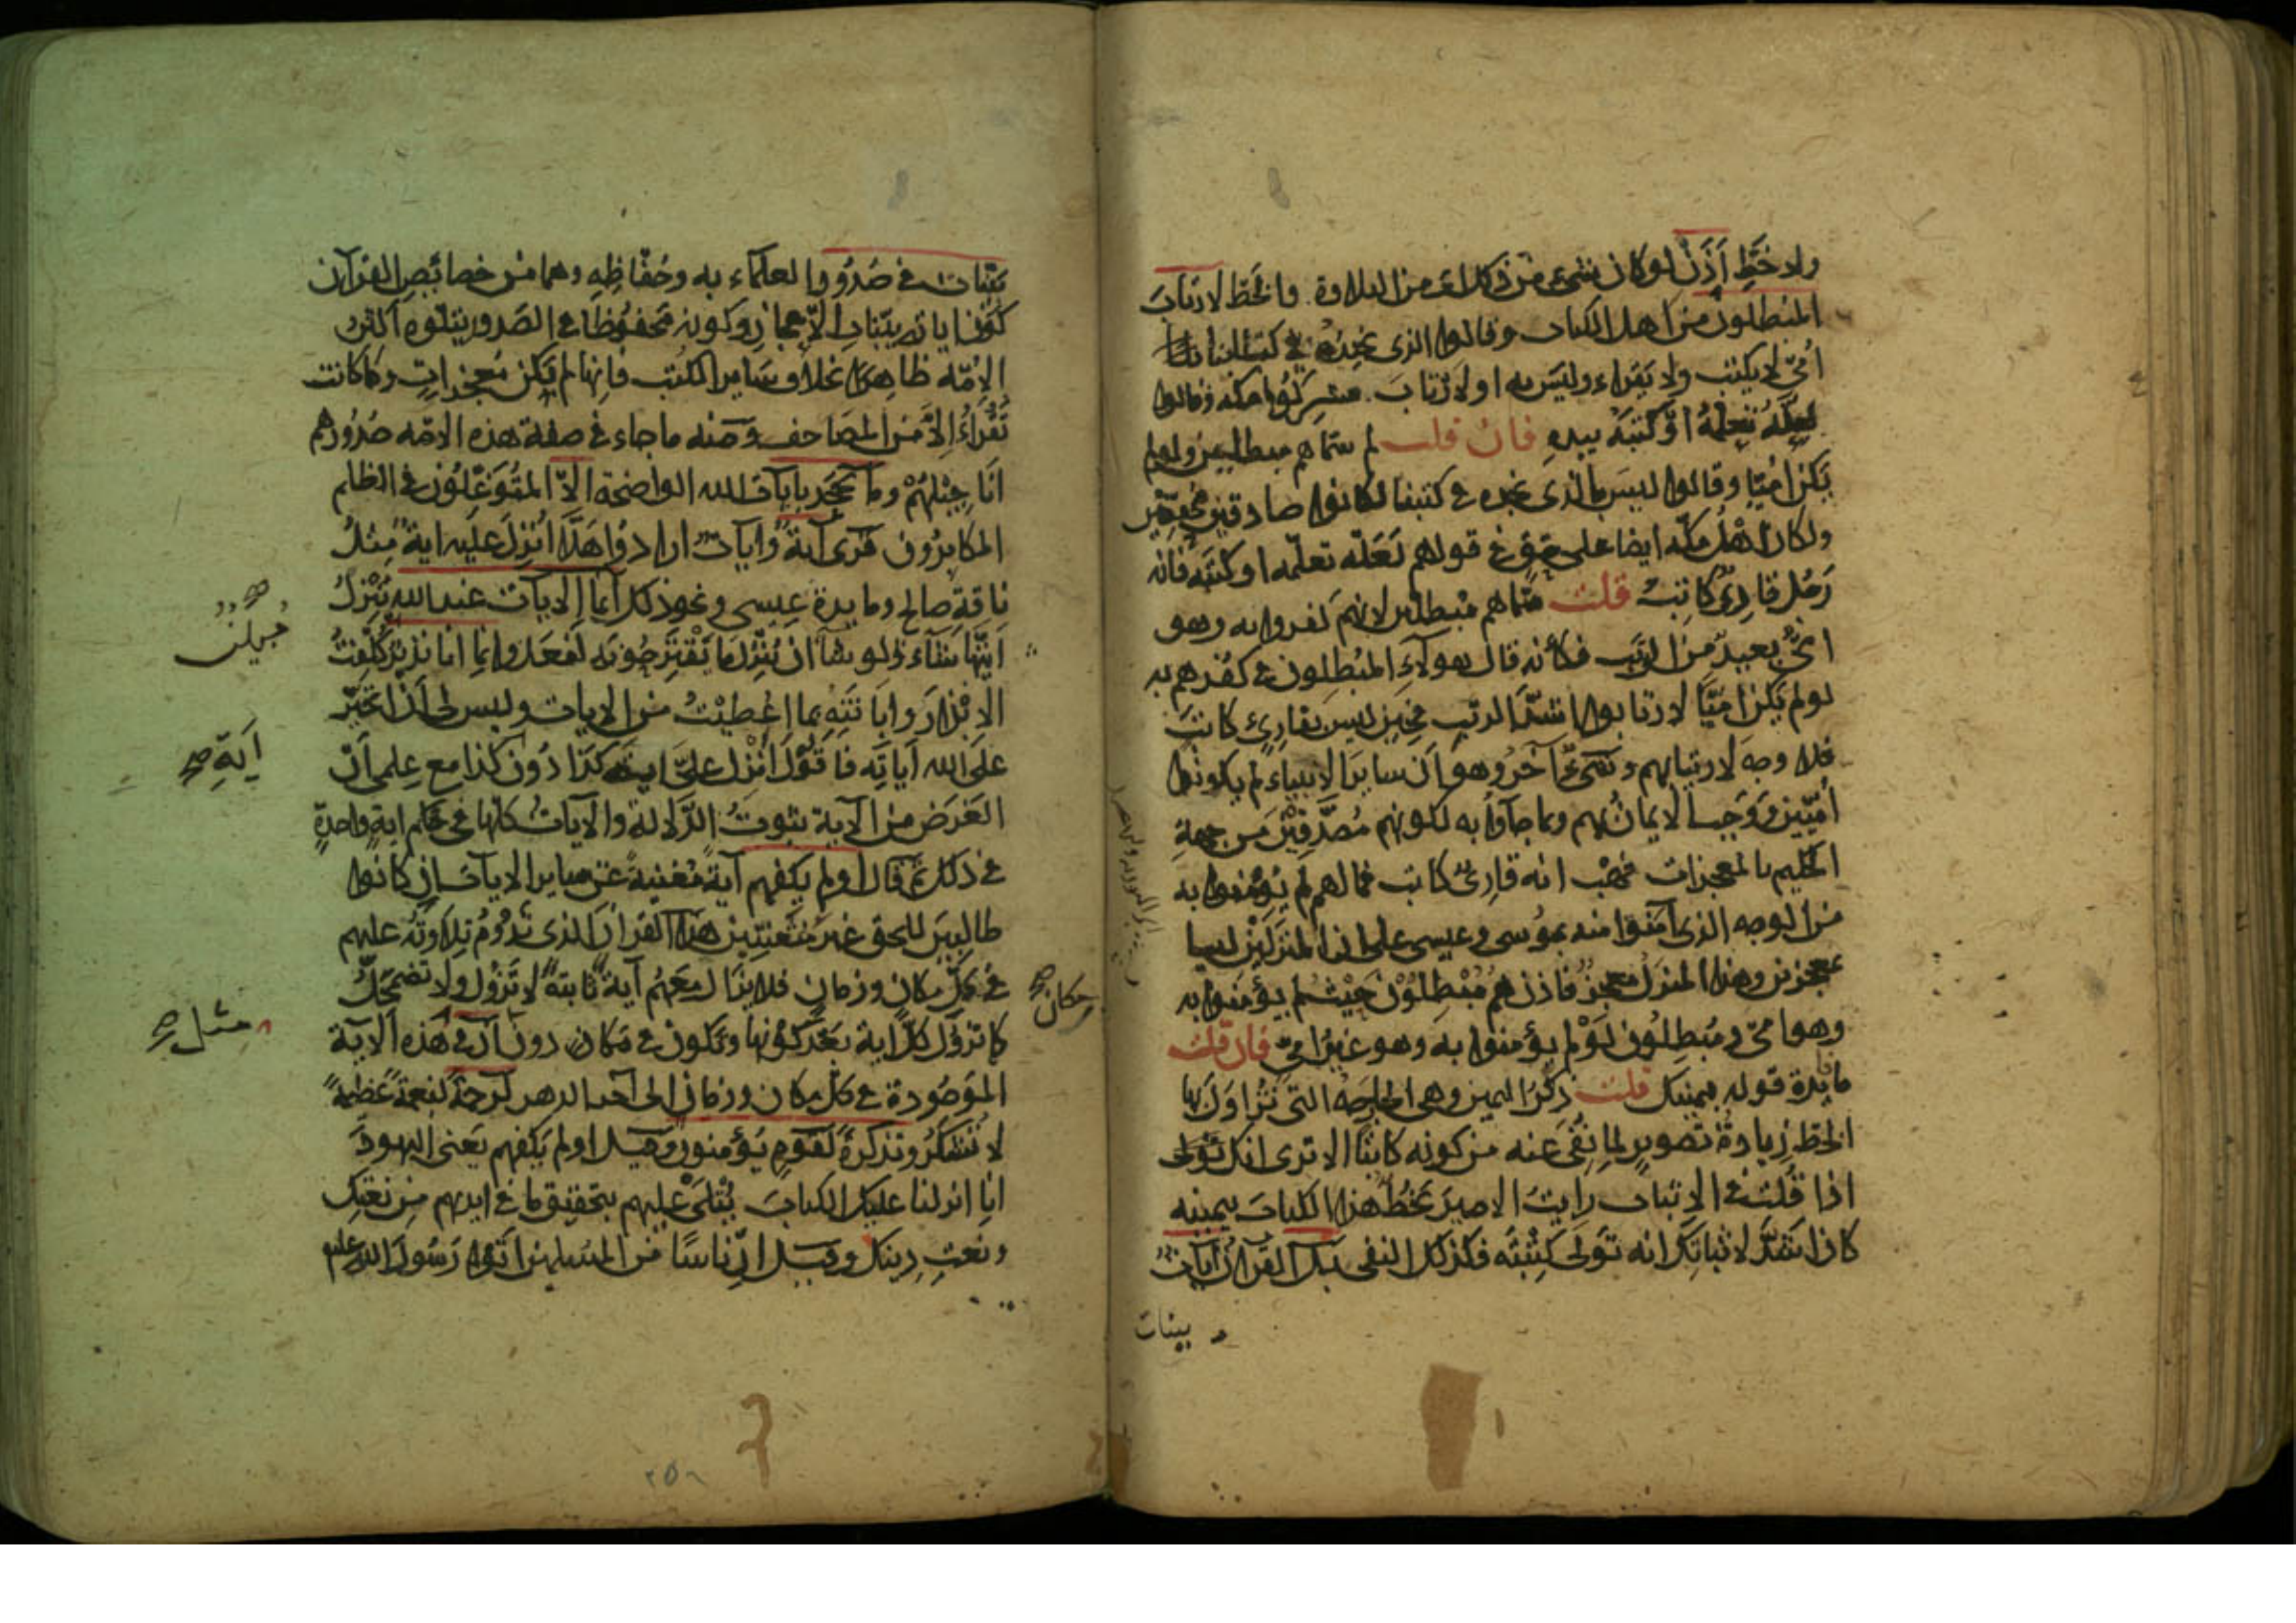 ولا خط إذن لو كان شيء من ذلك اى من التلاوة والخط لارتاب
المبطلون من اهل الكتاب وقالوا الذى نجده فى كتبنا
أمى لا يكتب ولا يقراء وليس به او لارتاب مشركوا مكه وقالوا
لعله تعلمه او كتبه بيده فان قلت لم سماهم مبطلين ولو لم
يكن اميا وقالوا ليس بالذى نجده فى كتبنا لكانوا صادقين محقين
ولكان اهل مكه ايضا على حق فى قولهم لعله تعلمه او كتبه فانه
رجل قارئ كاتب قلت سماهم مبطلين لانهم كفروا به وهو
امى بعيد من الريب فكأنه قال هولاء المبطلون فى كفرهم به
لو لم يكن اميا لارتابوا اشد الريب فحين ليس بقارئ كاتب
فلا وجه لارتيابهم وشىء آخر وهو ان ساير الانبياء لم يكونوا
أميين ووجب الايمان بهم وبما جاوا به لكونهم مصدقين من جهة
الحكيم بالمعجزات فهب انه قارئ كاتب فما لهم لم يؤمنوا به
من الوجه الذى آمنوا منه بموسى وعيسى على ان المنزلين ليسا
بمعجزين وهذا المنزل معجز فاذن هم مبطلون حيث لم يؤمنوا به
وهو امى ومبطلون لو لم يؤمنوا به وهو غير امى فان قلت
ما فايدة قوله بيمينك قلت ذكر اليمين وهى الجارحة التى تزاول بها
الخط زيادة تصوير لما نفى عنه من كونه كاتبا الا ترى انك
اذا قلت فى الاثبات رايت الامير يخط هذا الكتاب بيمينه
كان اشد لاثباتك انه تولى كتبته فكذلك النفى بل القرآن آيات
بينات
بينات فى صدور العلماء به وحفاظه وهما من خصائص القرآن
كون اياته بينات الاعجاز وكونه محفوظا فى الصدور يتلوه اكثر
الامّه ظاهرا بخلاف ساير الكتب فانها لم يكن معجزات وما كانت
تقراء إلا من المصاحف ومنه ما جاء فى صفة هذه الامّه صدورهم
اناجيلهم وما يجحد بايات الله الواضحة الا المتوغلون فى الظلم
المكابرون قرى آية وايات ارادوا هلا انزل عليه اية مثل
ناقة صالح ومايدة عيسى ونحو ذلك انما الايات عند الله ينزل
ايتها شاء ولو شاء ان ينزل ما يقترحونه لفعل وانما انا نذير كلفت
الانذار وابانته بما اعطيت من الايات وليس لى ان اتخير
على الله آياته فاقول انزل علىّ اية كذا دون كذا مع علمى أن
الغرض من الآية ثبوت الدلالة والآيات كلها فى حكم اية واحدة
فى ذلك ثم قال اولم يكفهم آية مغنية عن ساير الايات ان كانوا
طالبين للحق غير متعنتين هذا القرآن الذى تدوم تلاوته عليهم
فى كل مكان وزمان فلا يزال معهم آية ثابتة لا تزول ولا تضمحل
كما تزول كل اية بعد كونها وتكون فى مكان دون ان فى هذه الاية
الموجودة فى كل مكان وزمان الى آخر الدهر لرحمة لنعمة عظيمة
لا تشكر وتذكرة لقوم يؤمنون وقيل اولم يكفهم يعنى اليهود
انا انزلنا عليك الكتاب يتلى عليهم بتحقيق ما فى ايديهم من نعتك
ونعت دينك وقيل ان ناسا من المسلمين اتوا رسول الله عليه
آية صح
مثل صح
مكان صح
٢٥٦